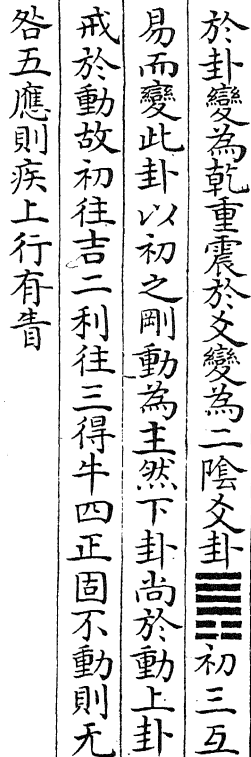 於卦變為乾重震於爻變為二陰爻卦䷠初三互
易而變此卦以初之剛動為主然下卦尚於動上卦
戒於動故初往吉二利往三得牛四正固不動則无
咎五應則疾上行有眚